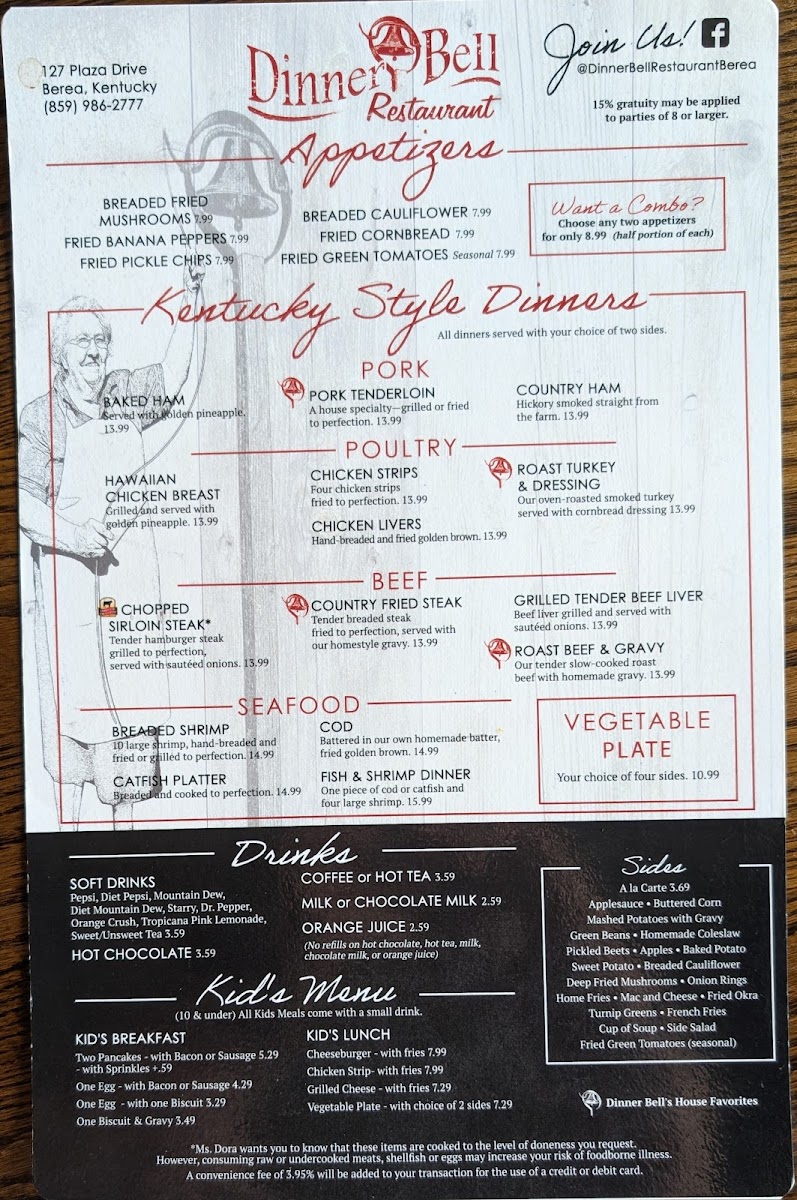 127 Plaza Drive
Berea, Kentucky
(859) 986-2777
Dinner Bell
Restaurant
Join Us!
@DinnerBellRestaurantBerea
15% gratuity may be applied
to parties of 8 or larger.
Appetizers
BREADED FRIED
MUSHROOMS 7.99
FRIED BANANA PEPPERS 7.99
FRIED PICKLE CHIPS 7.99
BREADED CAULIFLOWER 7.99
FRIED CORNBREAD 7.99
FRIED GREEN TOMATOES Seasonal 7.99
Want a Combo?
Choose any two appetizers
for only 8.99 (half portion of each)
Kentucky Style Dinners
All dinners served with your choice of two sides.
PORK
BAKED HAM
Served with golden pineapple.
13.99
PORK TENDERLOIN
A house specialty—grilled or fried
to perfection. 13.99
COUNTRY HAM
Hickory smoked straight from
the farm. 13.99
POULTRY
HAWAIIAN
CHICKEN BREAST
Grilled and served with
golden pineapple. 13.99
CHICKEN STRIPS
Four chicken strips
fried to perfection. 13.99
CHICKEN LIVERS
Hand-breaded and fried golden brown. 13.99
ROAST TURKEY
& DRESSING
Our oven-roasted smoked turkey
served with cornbread dressing 13.99
BEEF
CHOPPED
SIRLOIN STEAK*
Tender hamburger steak
grilled to perfection,
served with sautéed onions. 13.99
COUNTRY FRIED STEAK
Tender breaded steak
fried to perfection, served with
our homestyle gravy. 13.99
GRILLED TENDER BEEF LIVER
Beef liver grilled and served with
sautéed onions. 13.99
ROAST BEEF & GRAVY
Our tender slow-cooked roast
beef with homemade gravy. 13.99
SEAFOOD
BREADED SHRIMP
10 large shrimp, hand-breaded and
fried or grilled to perfection. 14.99
CATFISH PLATTER
Breaded and cooked to perfection. 14.99
COD
Battered in our own homemade batter,
fried golden brown. 14.99
FISH & SHRIMP DINNER
One piece of cod or catfish and
four large shrimp. 15.99
VEGETABLE
PLATE
Your choice of four sides. 10.99
Drinks
SOFT DRINKS
Pepsi, Diet Pepsi, Mountain Dew,
Diet Mountain Dew, Starry, Dr. Pepper,
Orange Crush, Tropicana Pink Lemonade,
Sweet/Unsweet Tea 3.59
HOT CHOCOLATE 3.59
COFFEE or HOT TEA 3.59
MILK or CHOCOLATE MILK 2.59
ORANGE JUICE 2.59
(No refills on hot chocolate, hot tea, milk,
chocolate milk, or orange juice)
Kid's Menu
(10 & under) All Kids Meals come with a small drink.
KID'S BREAKFAST
Two Pancakes - with Bacon or Sausage 5.29
- with Sprinkles +.59
One Egg - with Bacon or Sausage 4.29
One Egg - with one Biscuit 3.29
One Biscuit & Gravy 3.49
KID'S LUNCH
Cheeseburger - with fries 7.99
Chicken Strip- with fries 7.99
Grilled Cheese - with fries 7.29
Vegetable Plate - with choice of 2 sides 7.29
Sides
A la Carte 3.69
Applesauce • Buttered Corn
Mashed Potatoes with Gravy
Green Beans • Homemade Coleslaw
Pickled Beets • Apples • Baked Potato
Sweet Potato • Breaded Cauliflower
Deep Fried Mushrooms • Onion Rings
Home Fries • Mac and Cheese • Fried Okra
Turnip Greens • French Fries
Cup of Soup • Side Salad
Fried Green Tomatoes (seasonal)
Dinner Bell's House Favorites
*Ms. Dora wants you to know that these items are cooked to the level of doneness you request.
However, consuming raw or undercooked meats, shellfish or eggs may increase your risk of foodborne illness.
A convenience fee of 3.95% will be added to your transaction for the use of a credit or debit card.